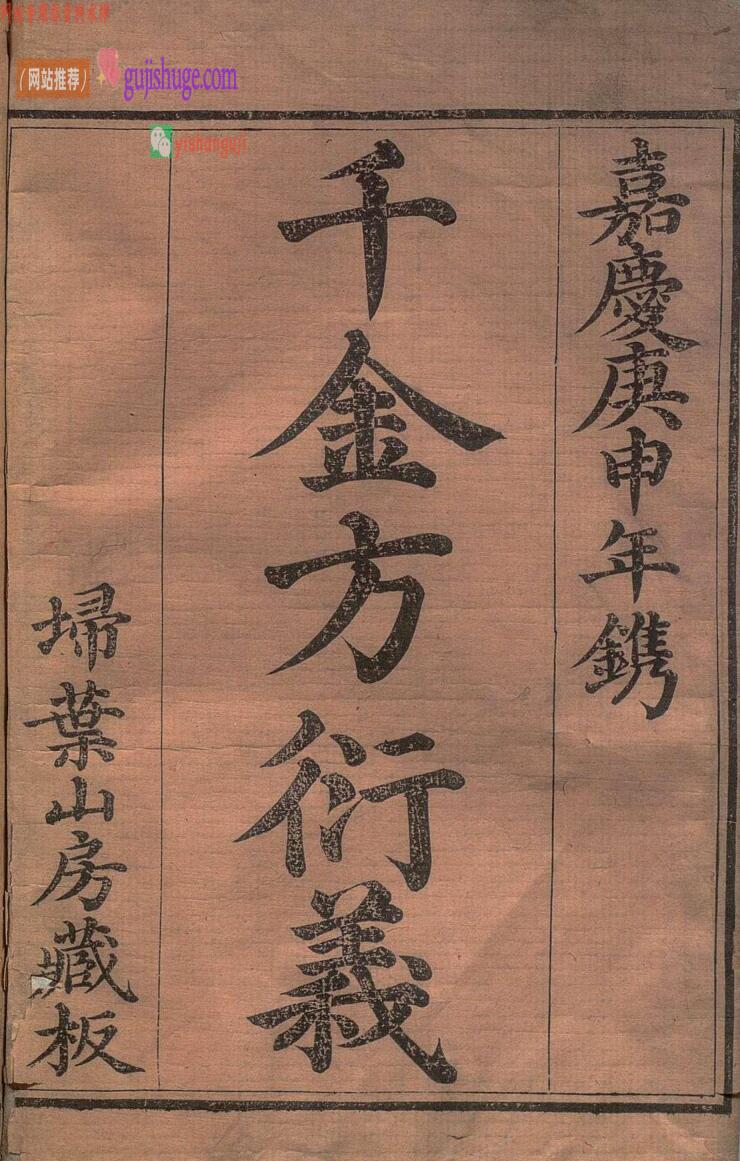 嘉慶庚申年鐫
千金方衍義
埽葉山房藏板
（网站推荐）
gujishuge.com
yishanguji